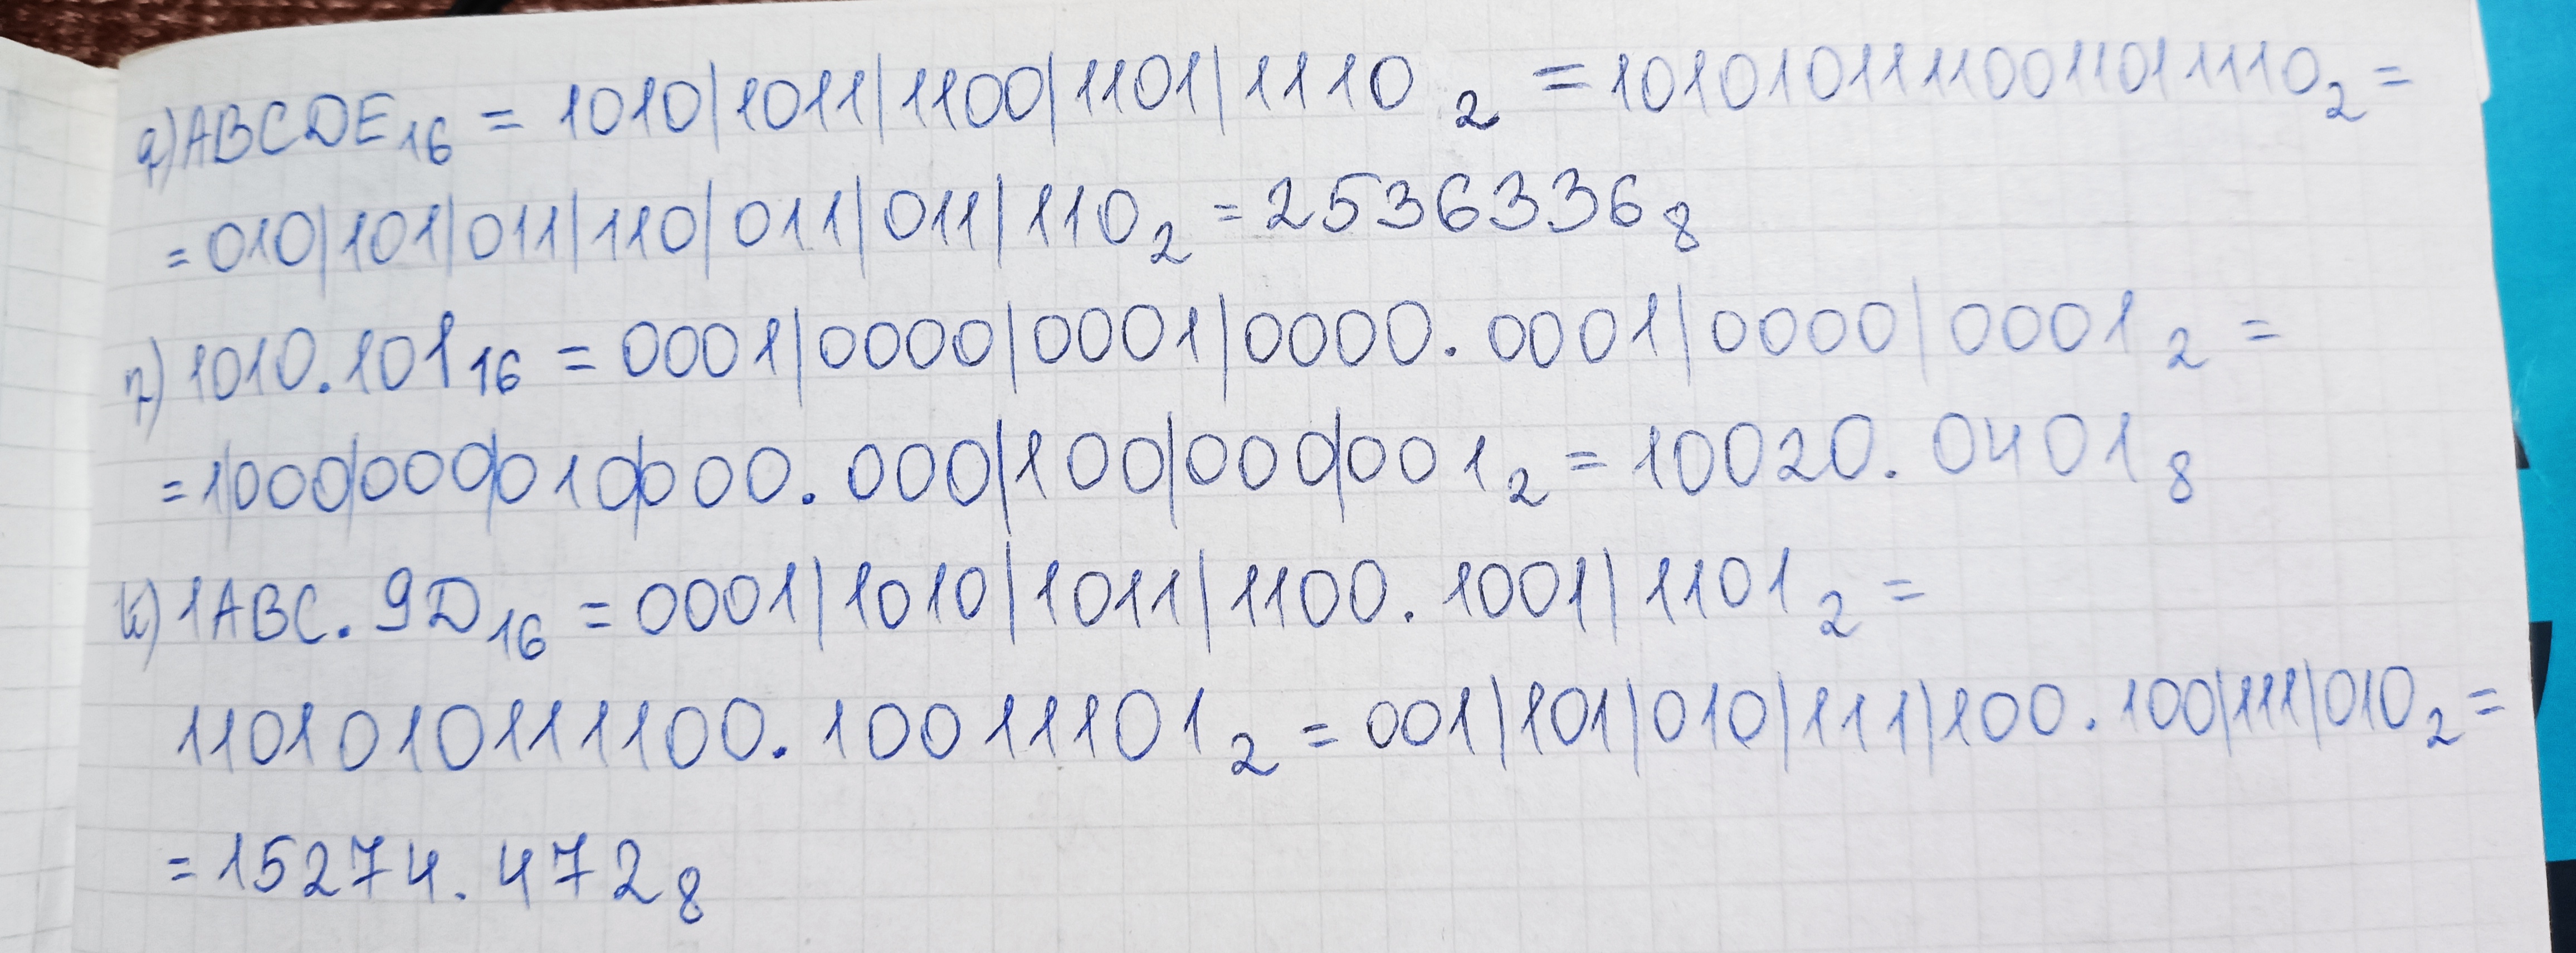 g) ABCDE₁₆ = 1010|1011|1100|1101|1110 ₂ = 10101011110011011110₂ =
= 010|101|011|110|011|011|110₂ = 2536336₈
h) 1010.101₁₆ = 0001|0000|0001|0000.0001|0000|0001 ₂ =
= 1|000|000|010|000.000|100|000|001₂ = 10020.0401₈
k) 1ABC.9D₁₆ = 0001|1010|1011|1100.1001|1101₂ =
1101010111100.10011101₂ = 001|101|010|111|100.100|111|010₂ =
= 15274.472₈